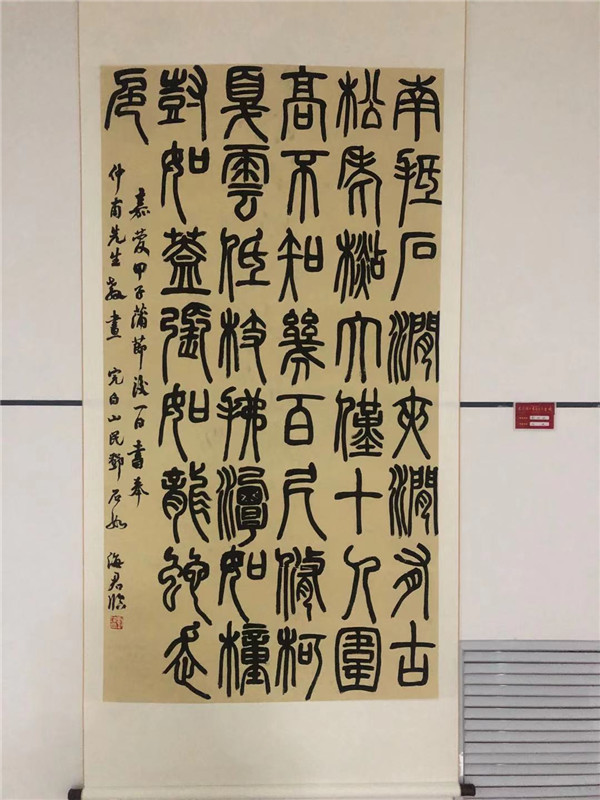 南抵石澗夾澗有古
松老檆大僅十人圍
高不知幾百尺脩柯
戛雲低枝拂潭如橦
尌如蓋張如龍虵走
嘉慶甲子蒲節後一日書奉
仲甫先生教畫 完白山民鄧石如 海君臨